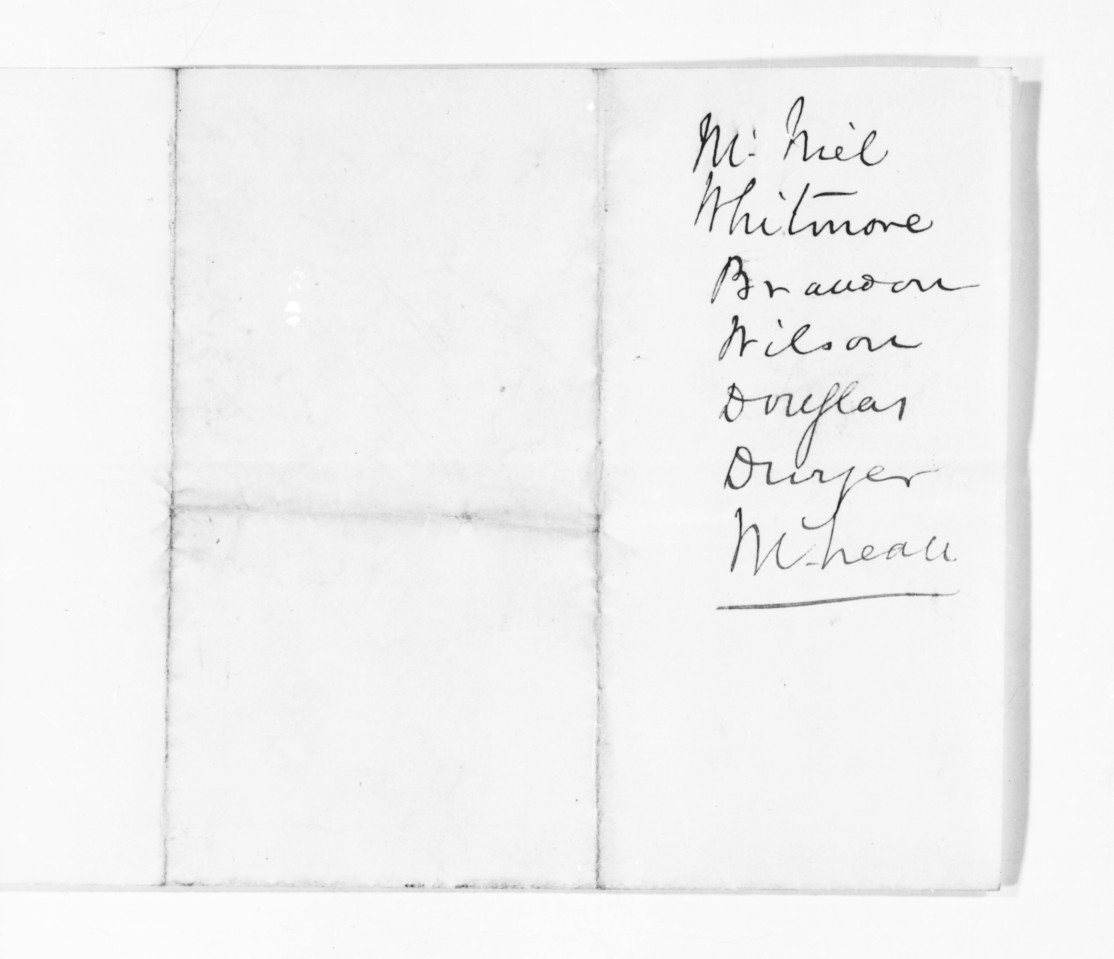 Mc Niel
Whitmore
Brandon
Wilson
Douglas
Dwyer